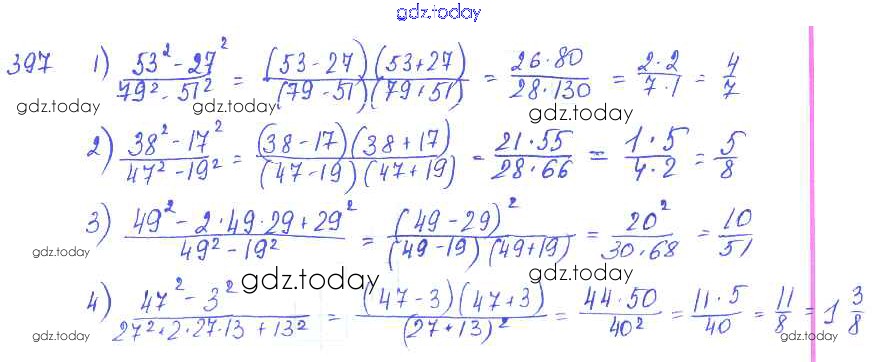 gdz.today
397 1) (53² - 27²)/(79² - 51²) = ((53 - 27)(53 + 27))/((79 - 51)(79 + 51)) = (26·80)/(28·130) = (2·2)/(7·1) = 4/7
gdz.today gdz.today gdz.today
2) (38² - 17²)/(47² - 19²) = ((38 - 17)(38 + 17))/((47 - 19)(47 + 19)) = (21·55)/(28·66) = (1·5)/(4·2) = 5/8
3) (49² - 2·49·29 + 29²)/(49² - 19²) = (49 - 29)²/((49 - 19)(49 + 19)) = 20²/(30·68) = 10/51
gdz.today gdz.today gdz.today
4) (47² - 3²)/(27² + 2·27·13 + 13²) = ((47 - 3)(47 + 3))/(27 + 13)² = (44·50)/40² = (11·5)/40 = 11/8 = 1 3/8
gdz.today gdz.today gdz.today